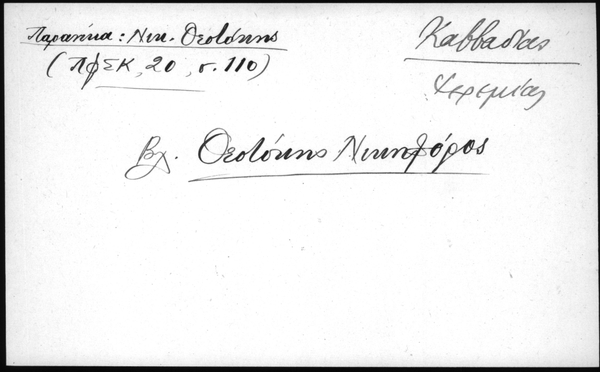 Παραπίπα: Νικ. Θεοτόκης
(ΠφΣΚ, 20, σ. 110)
Καββαδίας
Ἱερεμίας
Βλ. Θεοτόκης Νικηφόρος